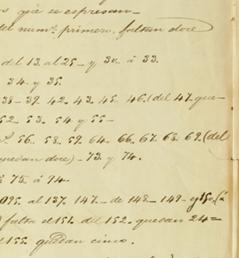 os que se espresan—
del num.º primero, faltan doce
del 13. al 25.— y 30. á 33.
34. y 35.
38— 39. 42. 43. 45. 46. (del 47. que-
52. 53. 54. y 55—
56. 58. 59. 64. 66. 67. 68. 69. (del
quedan doce)— 73. y 74.
75. á 94.
095. al 137. 147.— de 148— 149—
falta el 151. del 152. quedan 24—
el 155. quedan cinco.